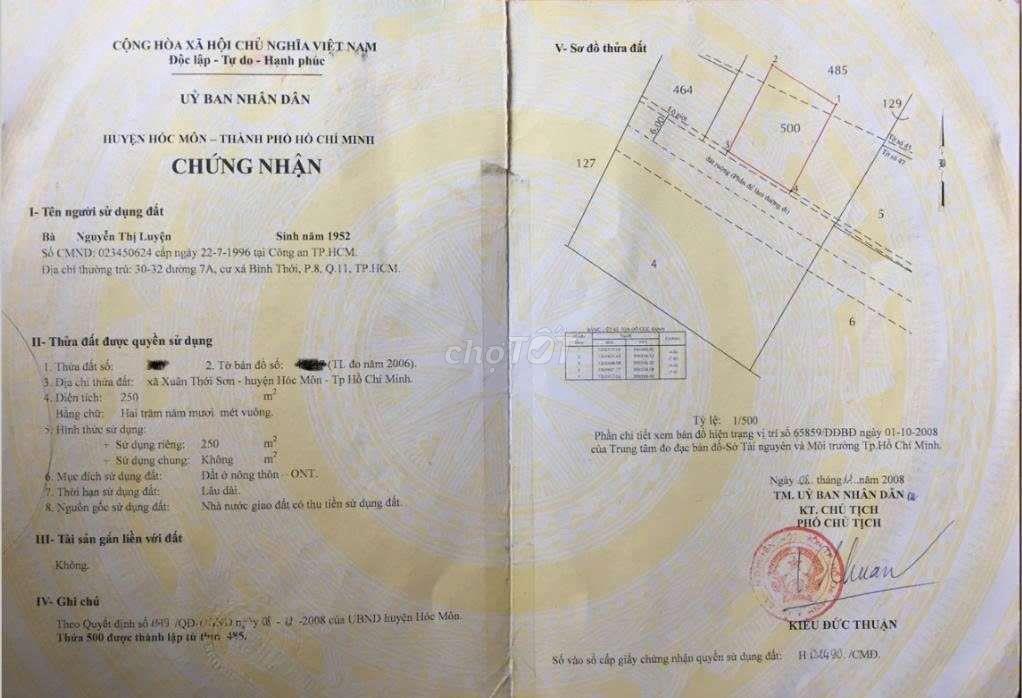 CỘNG HÒA XÃ HỘI CHỦ NGHĨA VIỆT NAM
Độc lập - Tự do - Hạnh phúc
UỶ BAN NHÂN DÂN
HUYỆN HÓC MÔN – THÀNH PHỐ HỒ CHÍ MINH
CHỨNG NHẬN
I- Tên người sử dụng đất
Bà Nguyễn Thị Luyện Sinh năm 1952
Số CMND: 023450624 cấp ngày 22-7-1996 tại Công an TP.HCM.
Địa chỉ thường trú: 30-32 đường 7A, cư xá Bình Thới, P.8, Q.11, TP.HCM.
II- Thửa đất được quyền sử dụng
1. Thửa đất số: 2. Tờ bản đồ số: (TL đo năm 2006).
3. Địa chỉ thửa đất: xã Xuân Thới Sơn - huyện Hóc Môn - Tp Hồ Chí Minh.
4. Diện tích: 250 m2
Bằng chữ: Hai trăm năm mươi mét vuông.
5. Hình thức sử dụng:
+ Sử dụng riêng: 250 m2
+ Sử dụng chung: Không m2
6. Mục đích sử dụng đất: Đất ở nông thôn – ONT.
7. Thời hạn sử dụng đất: Lâu dài.
8. Nguồn gốc sử dụng đất: Nhà nước giao đất có thu tiền sử dụng đất.
III- Tài sản gắn liền với đất
Không.
IV- Ghi chú
Theo Quyết định số /QĐ- ngày 08 - -2008 của UBND huyện Hóc Môn.
Thửa 500 được thành lập từ thửa 485.
V- Sơ đồ thửa đất
2
485
464
1
129
500
Lộ giới
6.00
Tờ số 45
Tờ số 47
3
127
Bờ ruộng (Phần để làm đường đi)
4
5
4
6
BẢNG LIỆT KÊ TỌA ĐỘ GÓC RANH
chợTỐT
Tỷ lệ: 1/500
Phần chi tiết xem bản đồ hiện trạng vị trí số 65859/DĐBĐ ngày 01-10-2008
của Trung tâm đo đạc bản đồ-Sở Tài nguyên và Môi trường Tp.Hồ Chí Minh.
Ngày 08 tháng năm 2008
TM. UỶ BAN NHÂN DÂN
KT. CHỦ TỊCH
PHÓ CHỦ TỊCH
KIỀU ĐỨC THUẬN
Số vào sổ cấp giấy chứng nhận quyền sử dụng đất: H /CMĐ.